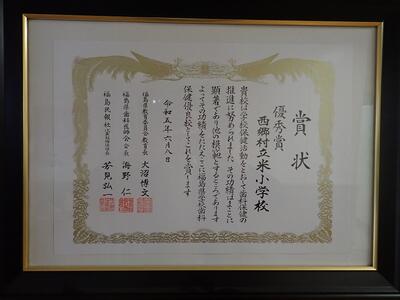 賞状
優秀賞
西郷村立米小学校
貴校は学校保健活動をとおして歯科保健の
推進に努められました その功績はまことに
顕著であり他の模範とするところであります
よってその功績をたたえここに福島県学校歯科
保健優良校としてこれを賞します
令和五年六月八日
福島県教育委員会教育長 大沼博文
福島県歯科医師会会長 海野仁
福島民報社代表取締役社長 芳見弘一